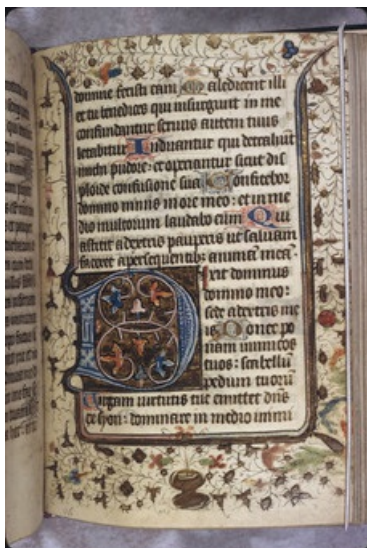 domine fecisti eam Maledicent illi
et tu benedices qui insurgunt in me
confundantur servus autem tuus
letabitur Induantur qui detrahunt
michi pudore: et operiantur sicut dif
ploide confusione sua Confitebor
domino nimis in ore meo: et in me
dio multorum laudabo eum Qui
astitit a dextris pauperis ut salvam
faceret a persequentibz animam meam.
Dixit dominus
domino meo:
sede a dextris me
is Donec po
nam inimicos
tuos: scabellum
pedum tuorum
Virgam virtutis tue emittet dns
ex syon: dominare in medio inimi